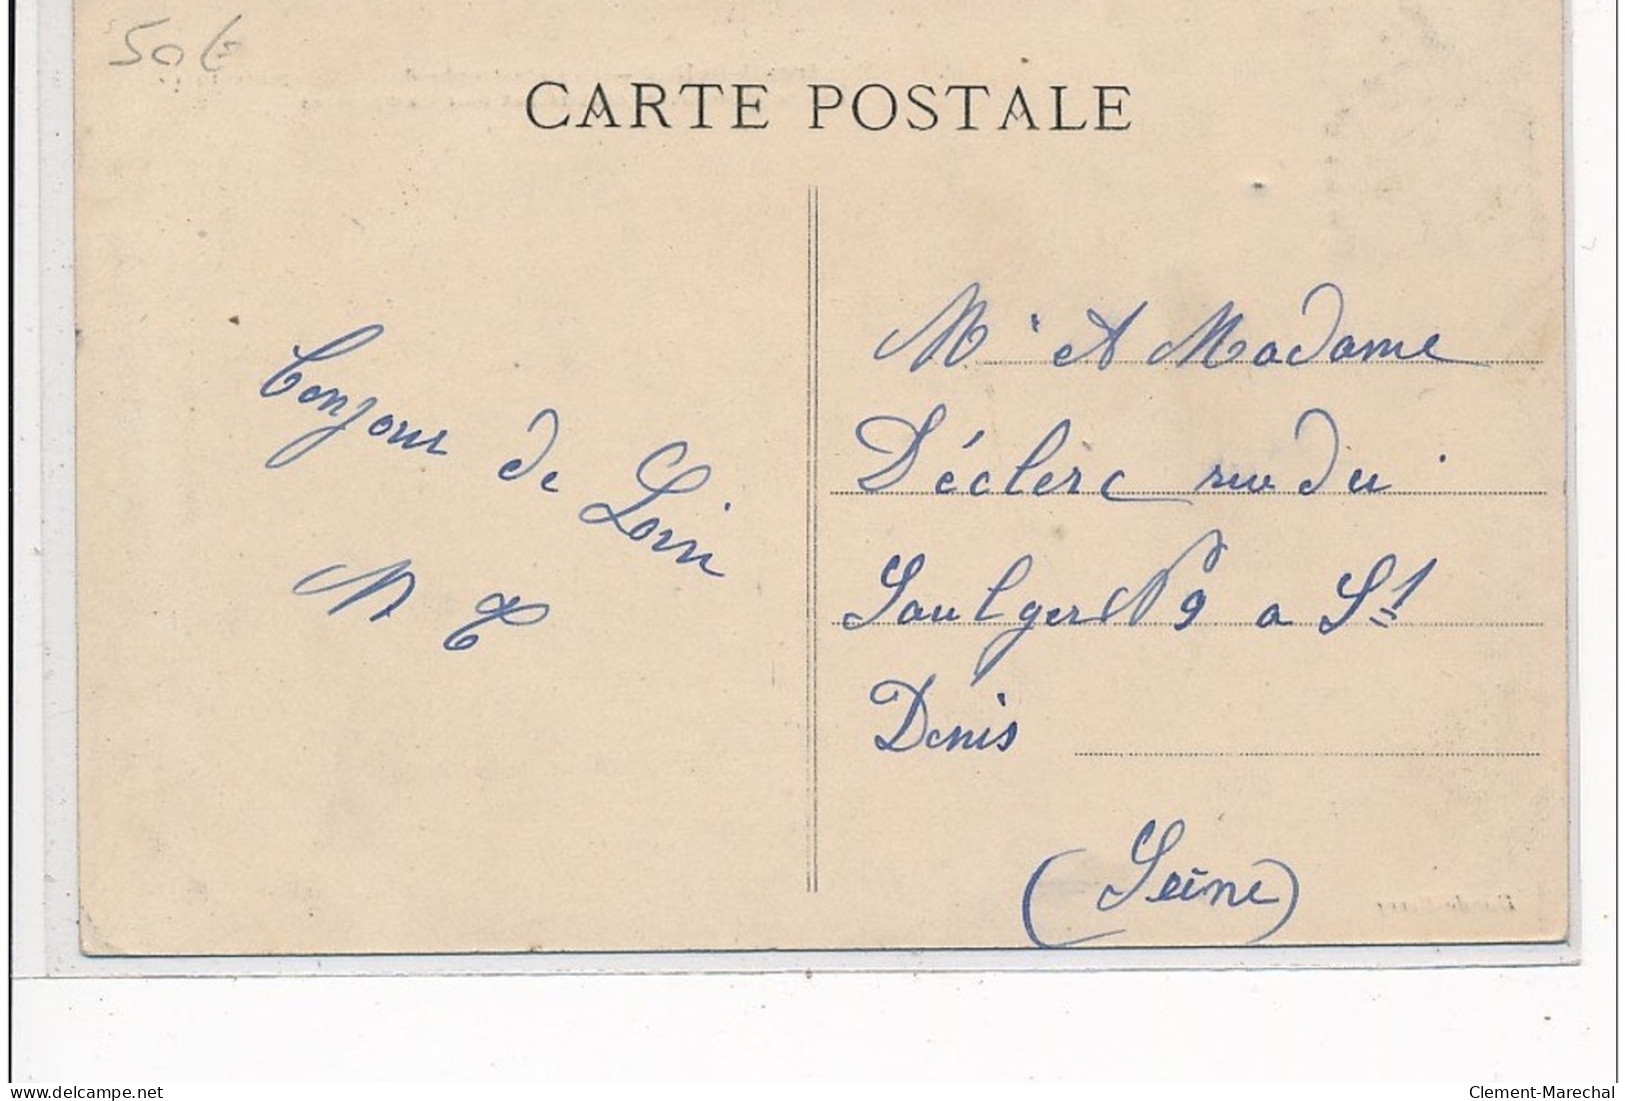 50€
CARTE POSTALE
Bonjour de Loin
M et Madame
Déclerc rue du
Saulger N 9 a St
Denis
(Seine)
delcampe.net
Clement-Marechal